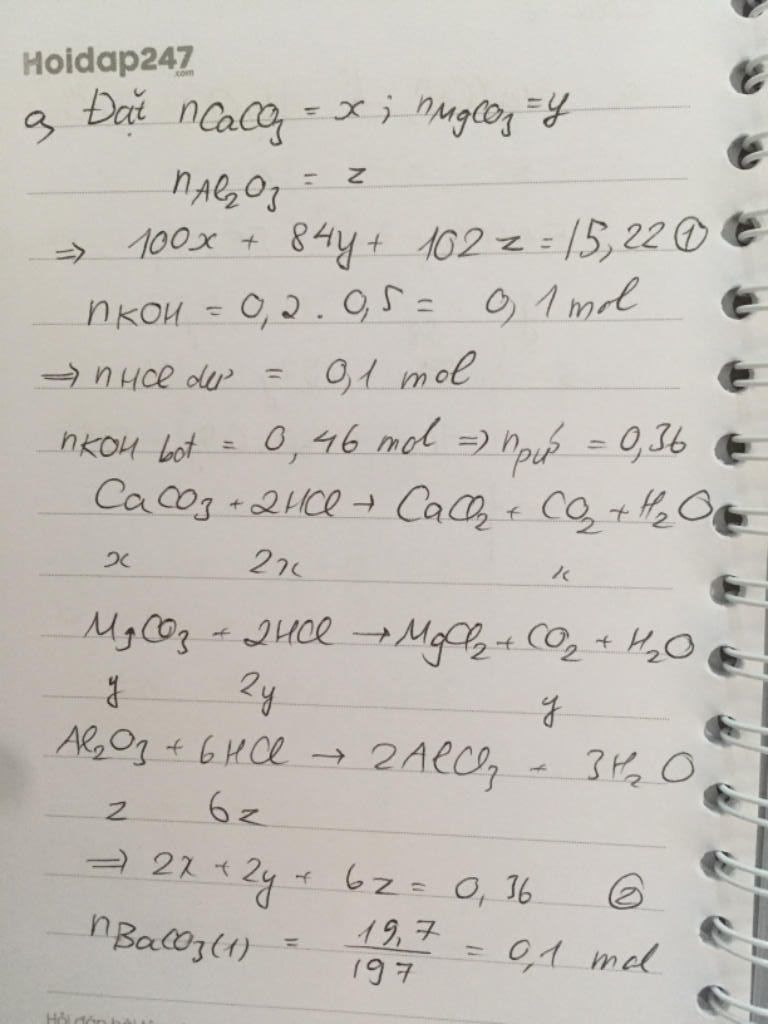 Hoidap247
.com
a, Đặt nCaCO3 = x ; nMgCO3 = y
nAl2O3 = z
⇒ 100x + 84y + 102z = 15,22 ①
nKOH = 0,2 . 0,5 = 0,1 mol
⇒ nHCl dư = 0,1 mol
nKOH bđ = 0,46 mol ⇒ npứ = 0,36
CaCO3 + 2HCl → CaCl2 + CO2 + H2O
x 2x x
MgCO3 + 2HCl → MgCl2 + CO2 + H2O
y 2y y
Al2O3 + 6HCl → 2AlCl3 + 3H2O
z 6z
⇒ 2x + 2y + 6z = 0,36 ②
nBaCO3(1) = 19,7 / 197 = 0,1 mol